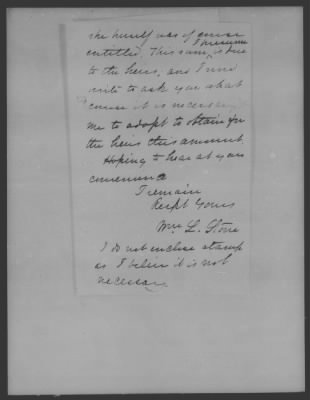 she herself was of course
entitled, This sum, I presume is due
to the heirs, and I now
write to ask you what
course it is necessary
me to adopt to obtain for
the heirs this amount.
Hoping to hear at your
convenience
I remain
Respt Yours
Wm L. Stone
I do not enclose stamp
as I believe it is not
necessary